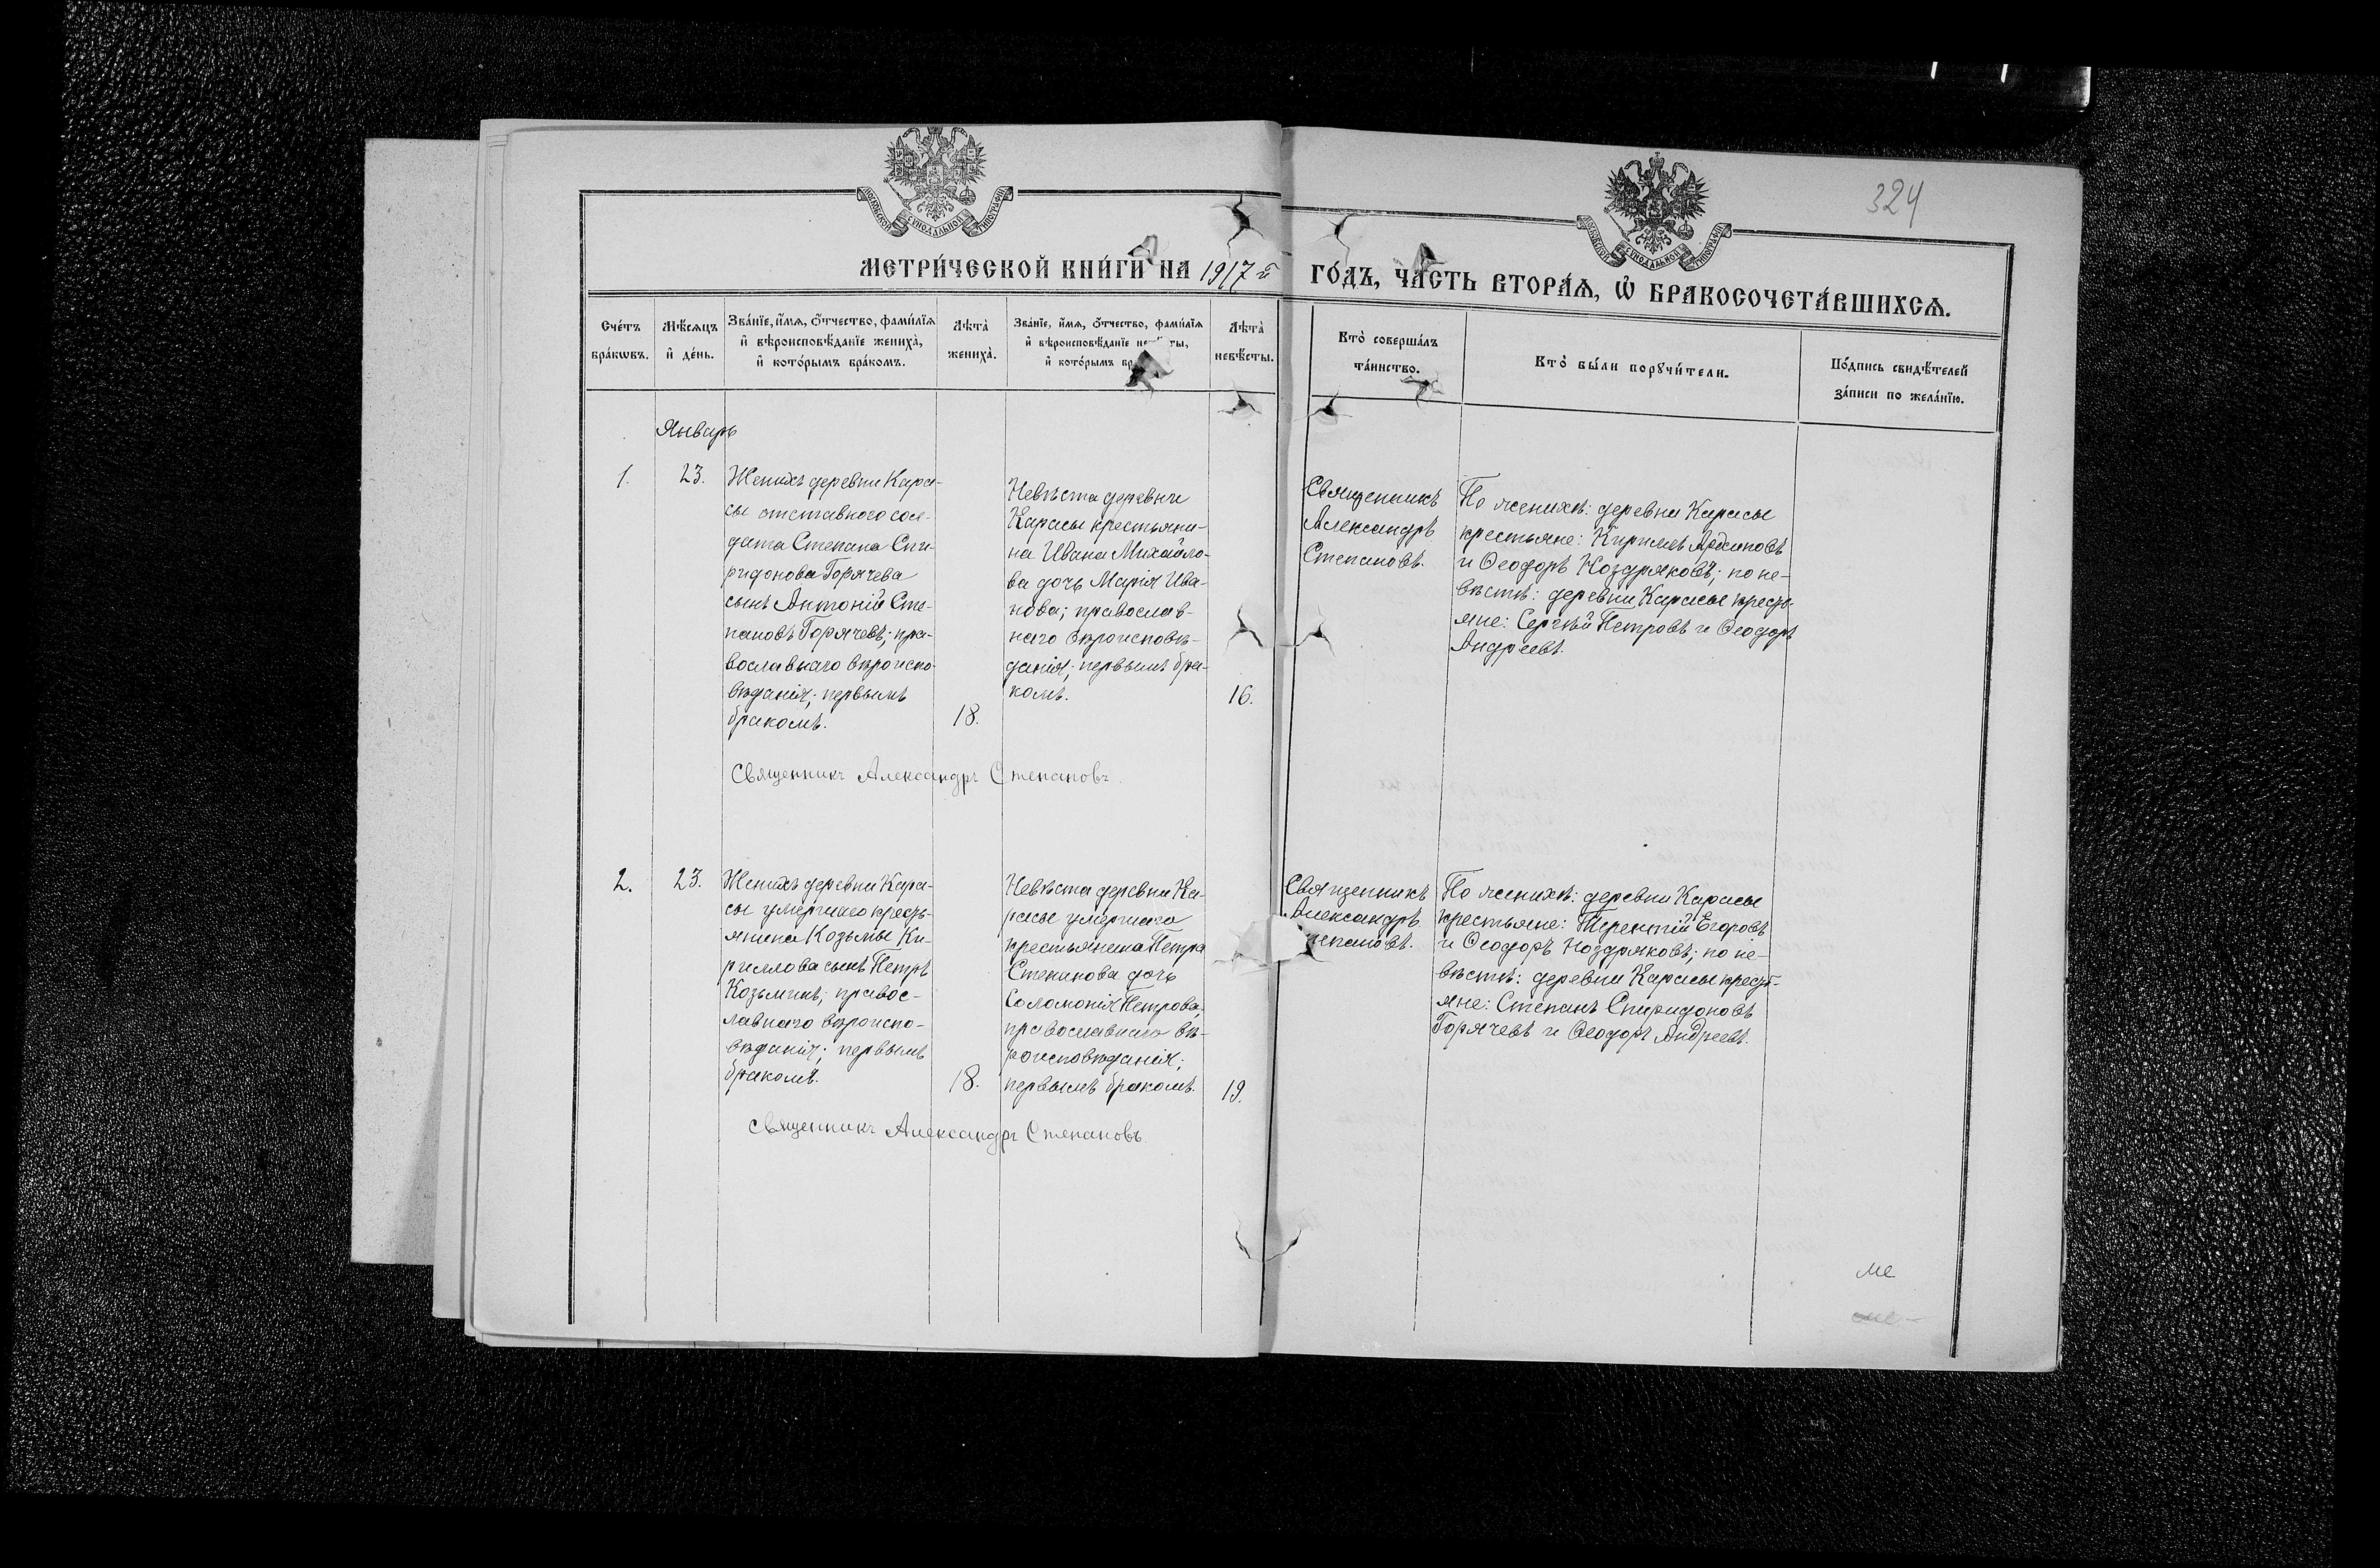 МОСКОВСКОЙ СѴНОДАЛЬНОЙ ТИПОГРАФІИ
МОСКОВСКОЙ СѴНОДАЛЬНОЙ ТИПОГРАФІИ
324
МЕТРИ́ЧЕСКОЙ КНИ́ГИ НА 1917 й ГО́ДЪ, ЧА́СТЬ ВТОРА́Ѧ, Ѡ҆ БРАКОСОЧЕТА́ВШИХСѦ.
Сче́тъ
бра́кѡвъ.
Мѣ́сѧцъ
и҆ де́нь.
Зва́нїе, и҆́мѧ, ѻ҆́тчество, фами́лїѧ
и҆ вѣроисповѣ́данїе жениха̀,
и҆ кото́рымъ бра́комъ.
Лѣта̀
жениха̀.
Зва́нїе, и҆́мѧ, ѻ҆́тчество, фами́лїѧ
и҆ вѣроисповѣ́данїе
и҆ кото́рымъ
Лѣта̀
невѣ́сты.
Кто̀ соверша́лъ
та́инство.
Кто̀ бы́ли порꙋчи́тели.
По́дпись свидѣ́телей
за́писи по жела́нїю.
Январь
1.
23.
Женихъ деревни Кара-
сы отставного сол-
дата Степана Спи-
ридонова Горячева
сынъ Антоній Сте-
пановъ Горячевъ; пра-
вославнаго вѣроиспо-
вѣданія; первымъ
бракомъ.
18.
Невѣста деревни
Карасы крестьяни-
на Ивана Михайло-
ва дочь Марія Ива-
нова; православ-
наго вѣроисповѣ-
данія; первымъ бра-
комъ.
16.
Священникъ
Александръ
Степановъ.
По женихѣ: деревни Карасы
крестьяне: Кириллъ Архиповъ
и Ѳеодоръ Ноздряковъ; по не-
вѣстѣ: деревни Карасы кресть-
яне: Сергѣй Петровъ и Ѳеодоръ
Андреевъ.
Священникъ Александръ Степановъ
2.
23.
Женихъ деревни Кара-
сы умершаго кресть-
янина Козьмы Ки-
риллова сынъ Петръ
Козьминъ; правос-
лавнаго вѣроиспо-
вѣданія; первымъ
бракомъ.
18.
Невѣста деревни Ка-
расы умершаго
крестьянина Петра
Степанова дочь
Соломонія Петрова;
православнаго вѣ-
роисповѣданія;
первымъ бракомъ.
19.
Священникъ
Александръ
тепановъ.
По женихѣ: деревни Карасы
крестьяне: Терентій Егоровъ
и Ѳеодоръ Ноздряковъ; по не-
вѣстѣ: деревни Карасы кресть-
яне: Степанъ Спиридоновъ
Горячевъ и Ѳеодоръ Андреевъ.
Священникъ Александръ Степановъ
ме